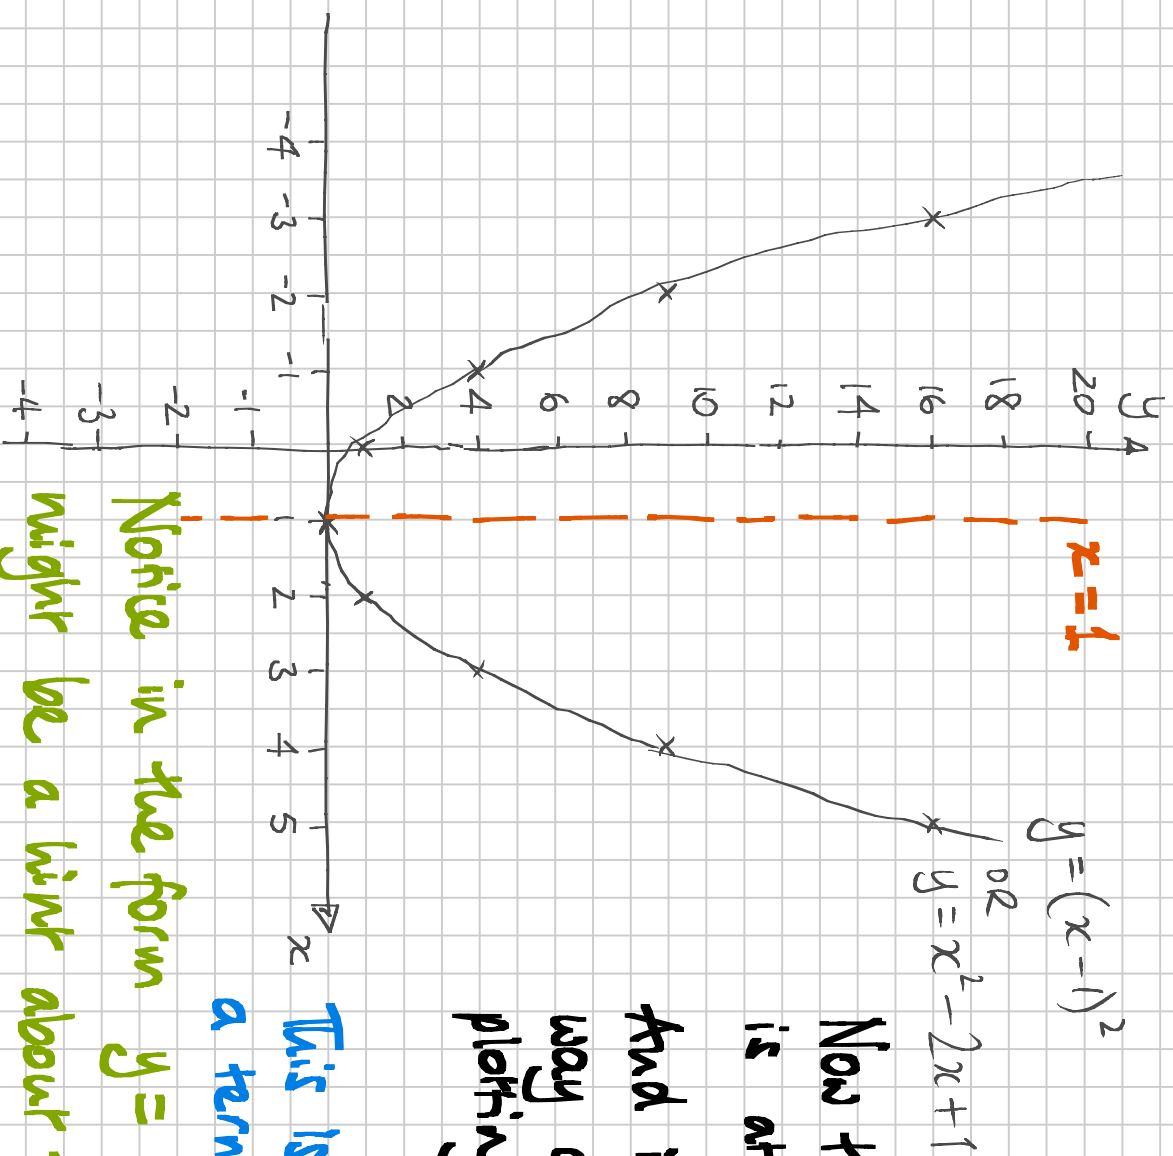 y
20
18
16
14
12
10
8
6
4
2
-1
-2
-3
-4
-4
-3
-2
-1
1
2
3
4
5
x
x=1
y=(x-1)²
OR
y=x²-2x+1
Now
is at
And
way
plottin
This is
a term
Notice in the form y=
might be a hint about